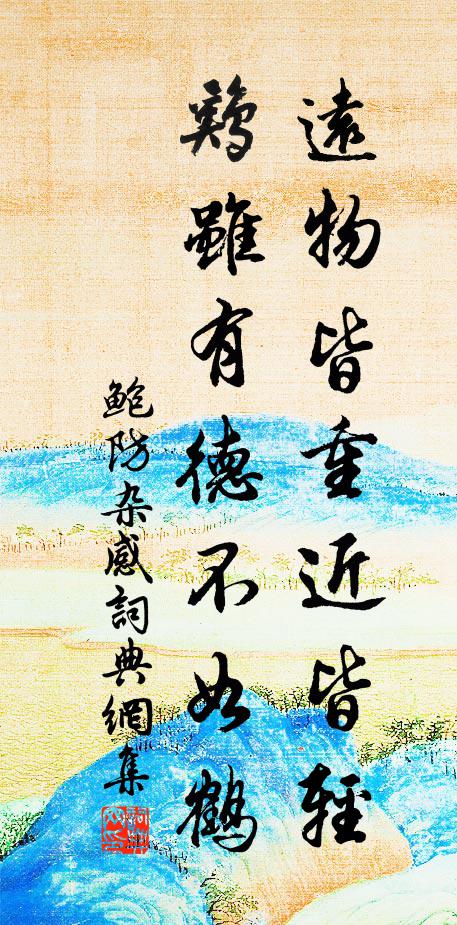 遠物皆重近皆輕
鷄雖有德不如鶴
鲍防杂感詞典網集